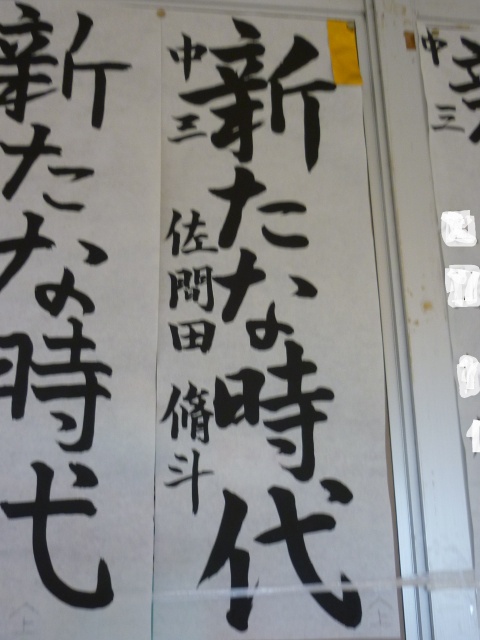 中三
新
新たな時代
中三 佐間田 脩斗
新たな時代
上
上